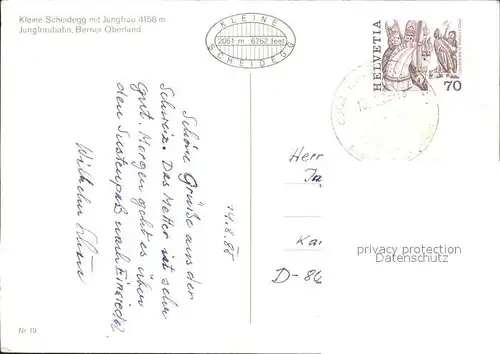 Kleine Scheidegg mit Jungfrau 4158 m
Jungfraubahn, Berner Oberland
KLEINE
2061 m 6762 feet
SCHEIDEGG
HELVETIA
70
14.8.86
Schöne Grüße aus der
Schweiz. Das Wetter ist sehr
gut. Morgen geht es über
den Sustenpaß nach Einsiedel.
Wilhelm
Herr
Kar
D-86
privacy protection
Datenschutz
Nr 19